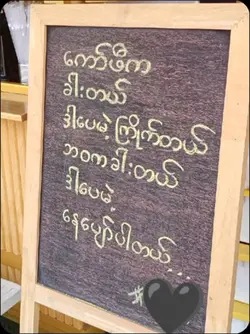 ကော်ဖီက
ခါးတယ်
ဒါပေမဲ့ ကြိုက်တယ်
ဘဝက ခါးတယ်
ဒါပေမဲ့
နေပျော်ပါတယ်...
#